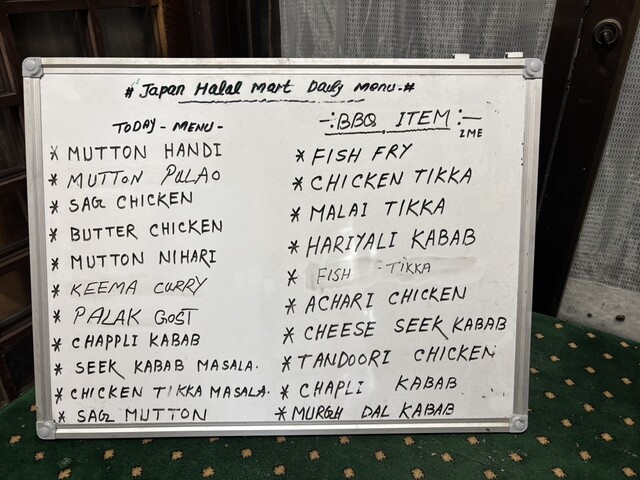 # Japan Halal Mart Daily Menu-#
TODAY - MENU -
* MUTTON HANDI
* MUTTON PULAO
* SAG CHICKEN
* BUTTER CHICKEN
* MUTTON NIHARI
* KEEMA CURRY
* PALAK GOST
* CHAPPLI KABAB
* SEEK KABAB MASALA.
* CHICKEN TIKKA MASALA.
* SAG MUTTON
-: BBQ ITEM :-
* FISH FRY
* CHICKEN TIKKA
* MALAI TIKKA
* HARIYALI KABAB
* FISH -TIKKA
* ACHARI CHICKEN
* CHEESE SEEK KABAB
* TANDOORI CHICKEN
* CHAPLI KABAB
* MURGH DAL KABAB